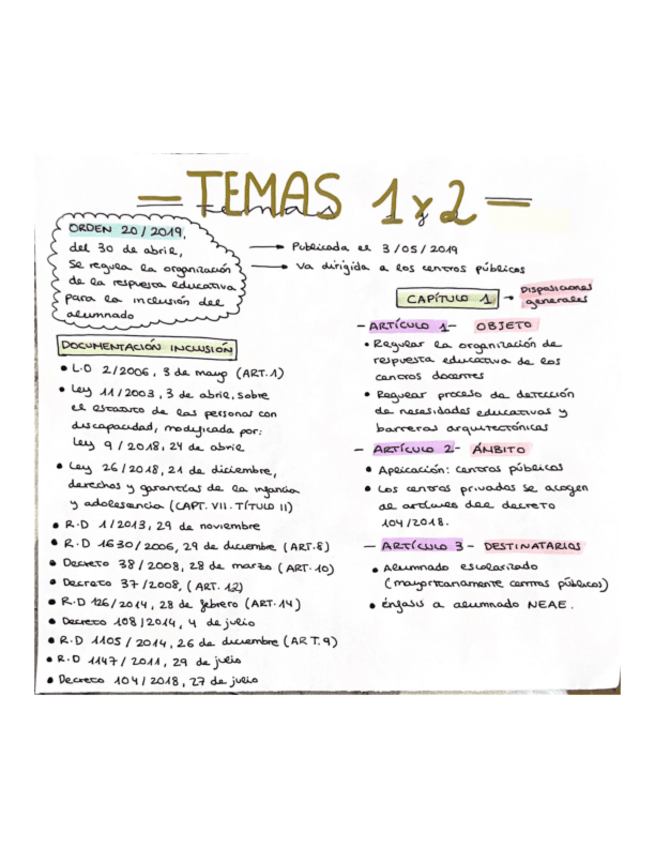 = TEMAS 1 y 2 =
temas y
ORDEN 20/2019,
del 30 de abril,
se regula la organización
de la respuesta educativa
para la inclusión del
alumnado
→ Publicada el 3/05/2019
→ Va dirigida a los centros públicos
DOCUMENTACIÓN INCLUSIÓN
• L.O 2/2006, 3 de mayo (ART.1)
• Ley 11/2003, 3 de abril, sobre
el estatuto de las personas con
discapacidad, modificada por:
Ley 9/2018, 24 de abril
• Ley 26/2018, 21 de diciembre,
derechos y garantías de la infancia
y adolesencia (CAPT. VII. TÍTULO II)
• R.D 1/2013, 29 de noviembre
• R.D 1630/2006, 29 de diciembre (ART.8)
• Decreto 38/2008, 28 de marzo (ART.10)
• Decreto 37/2008, (ART. 12)
• R.D 126/2014, 28 de febrero (ART.14)
• Decreto 108/2014, 4 de julio
• R.D 1105/2014, 26 de diciembre (ART.9)
• R.D 1147/2011, 29 de julio
• Decreto 104/2018, 27 de julio
CAPÍTULO 1 → Disposiciones
generales
- ARTÍCULO 1 - OBJETO
• Regular la organización de
respuesta educativa de los
centros docentes
• Regular proceso de detección
de necesidades educativas y
barreras arquitectónicas
- ARTÍCULO 2 - ÁMBITO
• Aplicación: centros públicos
• Los centros privados se acogen
al artículo del decreto
104/2018.
- ARTÍCULO 3 - DESTINATARIOS
• Alumnado escolarizado
(mayoritariamente centros públicos)
• énfasis a alumnado NEAE.